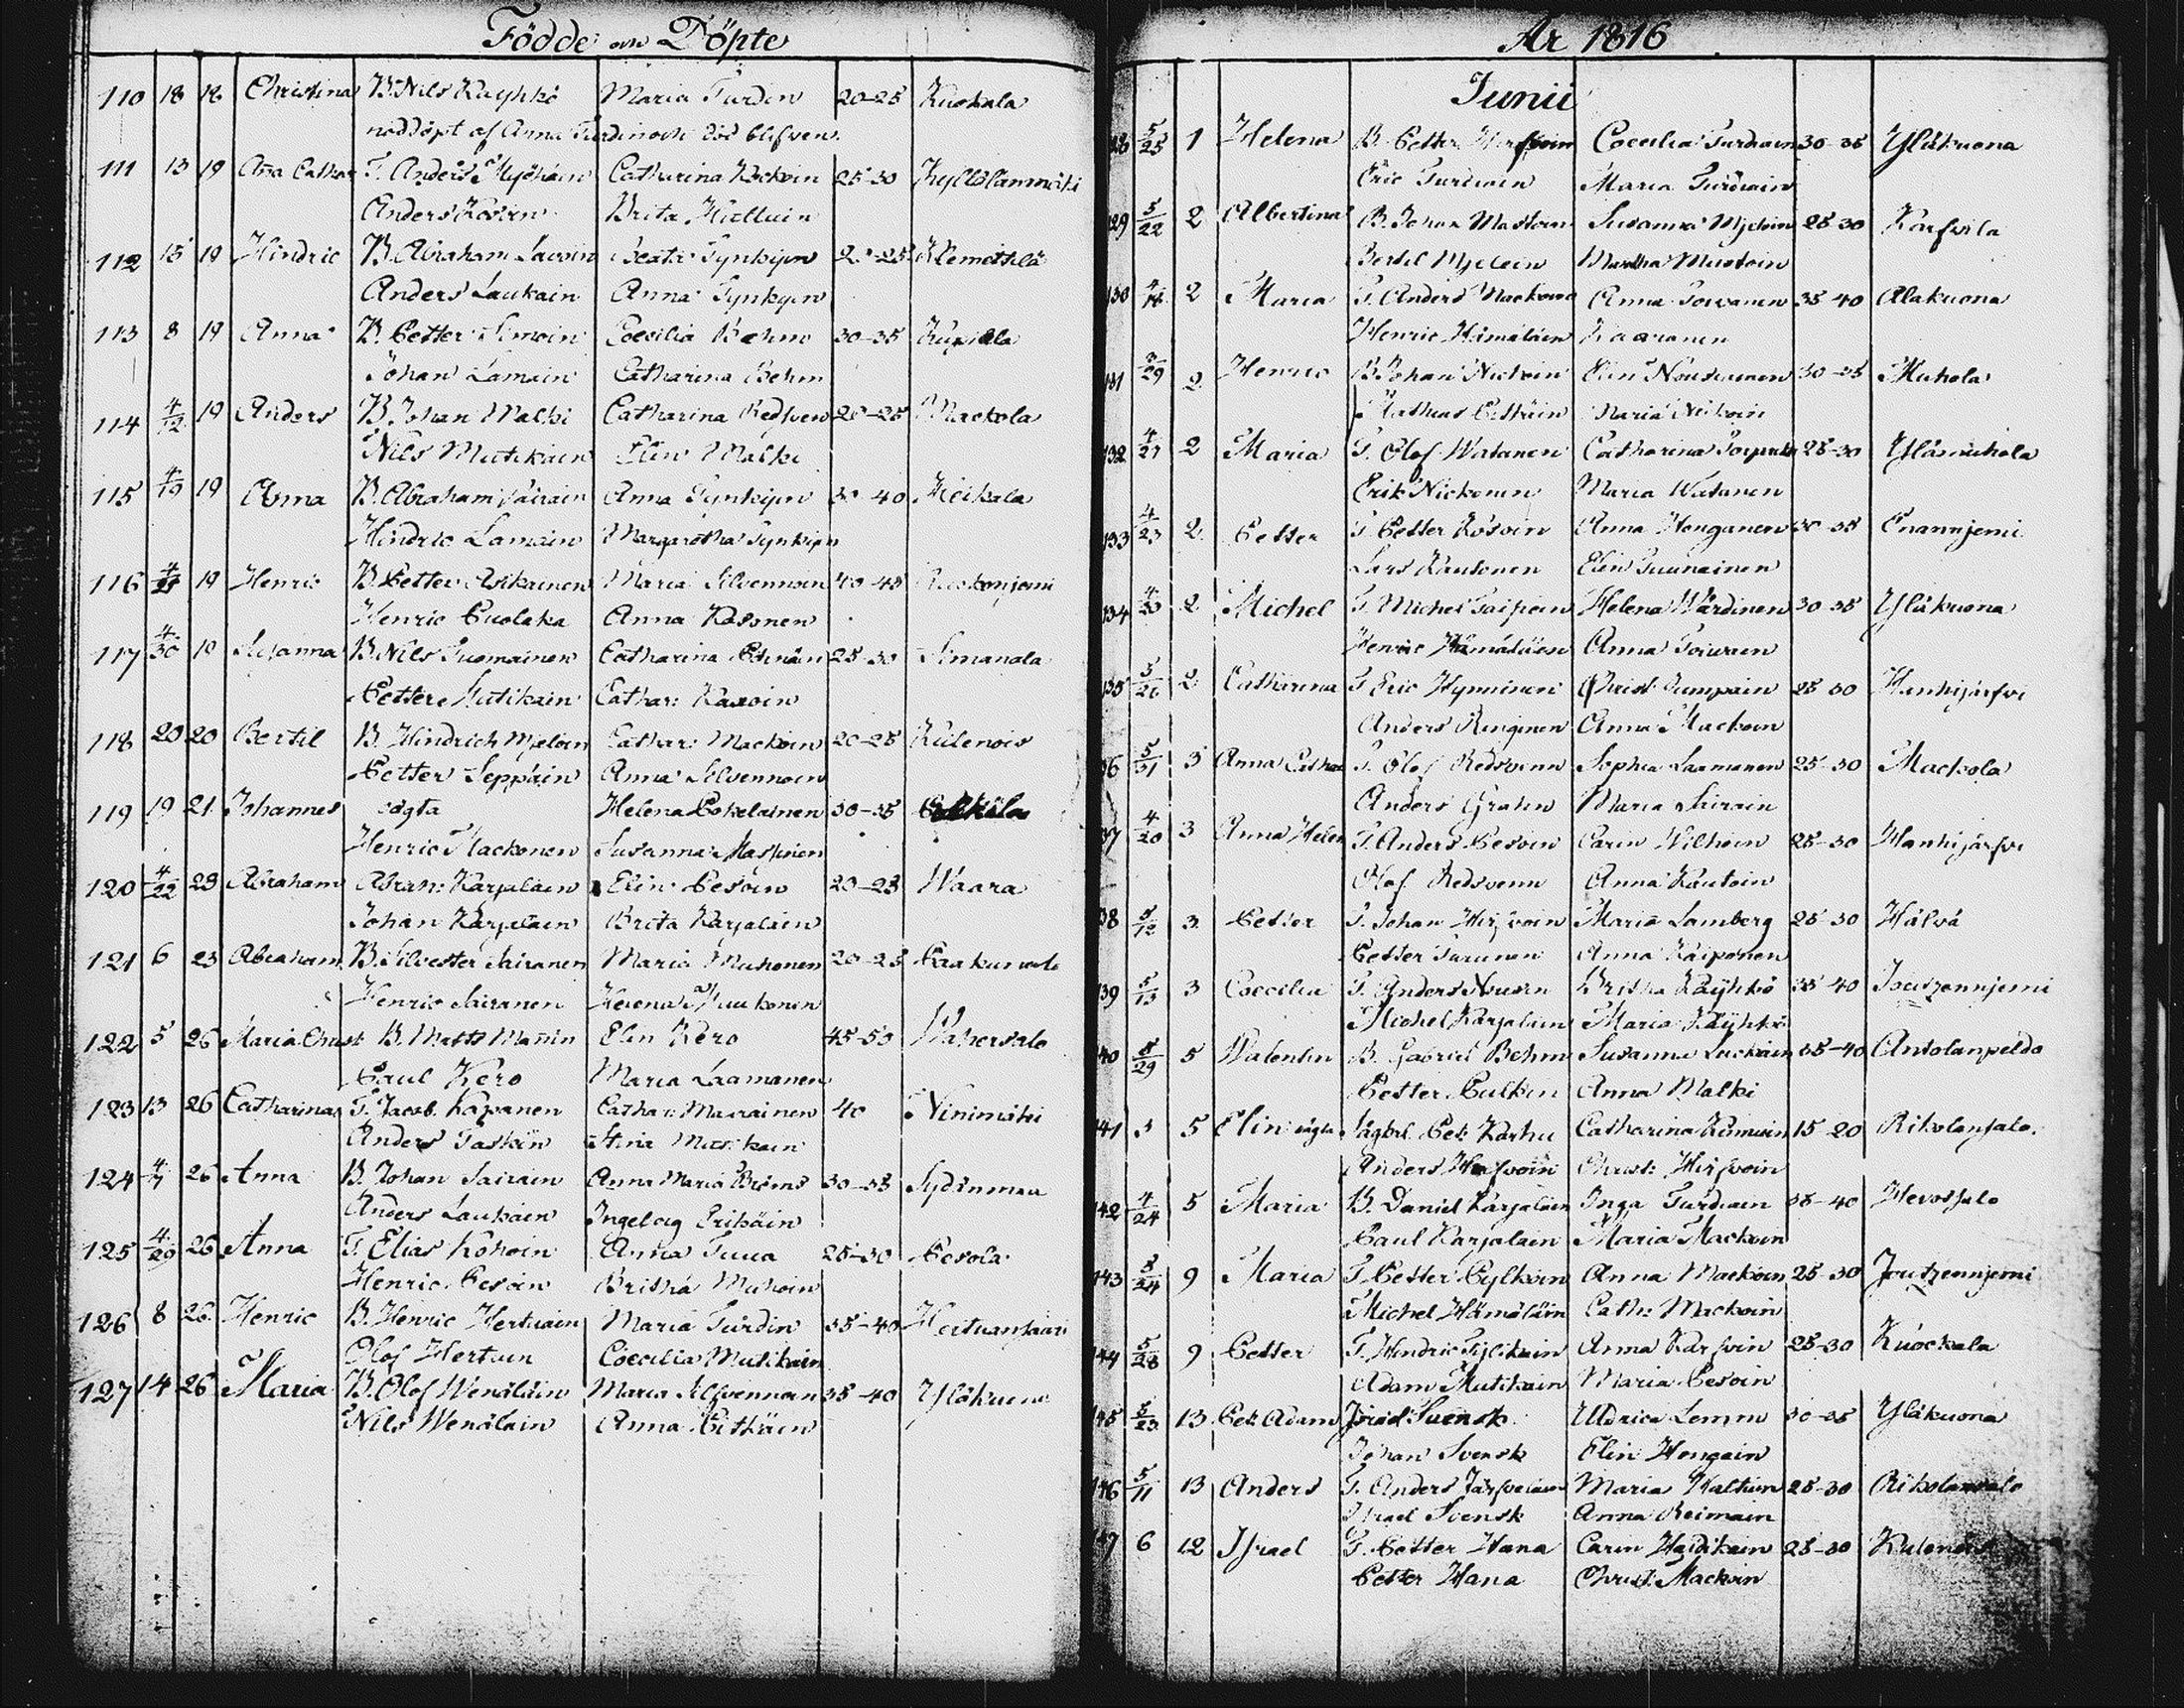 Födde och Döpte
110 18 18 Christina B. Nils Käyhkö Maria Turdin 20-25 Kuokala
nöddöpt af Anna Turdin och död blifven.
111 13 19 Aña Cathar T. Anders Myöhäin Catharina Kockoin 25-30 Kyllölänmäki
Anders Kosoin Brita Hältuin
112 15 19 Hindric B. Abraham Lavoin Beata Tynkyin 25 Klemettilä
Anders Laukain Anna Tynkyin
113 8 19 Anna B. Petter Simoin Coecilia Behm 30-35 Kupiala
Johan Lamain Catharina Behm
114 4/12 19 Anders B. Johan Malki Catharina Redsven 20-25 Mackola
Nils Mutikain Elin Malki
115 4/19 19 Anna B. Abraham Sairain Anna Tynkyin 30-40 Meikala
Hindric Lamain Margaretha Tynkyin
116 19 Henric B. Petter Asikainen Maria Silvennoin 40-45
Henric Puolaka Anna Kosonen
117 4/30 19 Susanna B. Nils Tuomainen Catharina 25-30 Simanala
Petter Mutikain Cathar: Kasoin
118 20 20 Bertil B. Hindrich Mjeloin Cathar: Mackoin 20-25 Kulenois
Petter Seppäin Anna Silvennoin
119 19 21 Johannes oägta Helena Pokelainen 30-35
Henric Mackonen Susanna
120 4/22 23 Abraham Abrah: Karjalain Elin Pesoin 20-25 Waara
Johan Karjalain Brita Karjalain
121 6 23 Abraham B. Silvester Sairanen Maria Muhonen 20-25
Henric Sairanen Helena Muukonen
122 5 26 Maria Christ: B. Matts Mañin Elin Kero 45-50 Wahersalo
Paul Kero Maria Laamanen
123 13 26 Catharina T. Jacob Kapanen Cathar: Maarainen 40 Ninimäki
Anders Taskin Stina Mutikain
124 4/7 26 Anna B. Johan Sairain Anna Maria Broms 30-35 Sydänmaa
Anders Laukain Ingeborg Erikäin
125 4/29 26 Anna T. Elias Kohoin Anna Tuua 25-30 Pesola
Henric Pesoin Britha Muhoin
126 8 26 Henric B. Henric Hertuain Maria Turdin 35-40 Hertuansaari
Olof Hertuin Coecilia Mutikain
127 14 26 Maria B. Olof Wenäläin Maria Silfvennoin 35-40 Yläkuona
Nils Wenäläin Anna Pitkäin
År 1816
Junii
5/25 1 Helena B. Petter Hirfvoin Coecilia Turduain 30-35 Yläkuona
Eric Turduain Maria Turduain
129 5/22 2 Albertina B. Johan Mustoin Susanna Mjeloin 25-30 Karfvila
Bertil Mjeloin Martha Mustoin
130 2 Maria T. Anders Mackoin Anna Toivanen 35-40 Alakuona
Henric Hämäläin Kaaranen
131 2 Henric B. Johan Nickoin Elin Nousiainen 30-35 Muhola
Mathias Maria Nickoin
132 2 Maria T. Olof Watanen Catharina 25-30 Ylämuhola
Erik Nickonen Maria Watanen
133 4/23 2 Petter T. Petter Kosoin Anna Honganen 30-35 Enanniemi
Lars Rautonen Elin Tuunainen
134 4/30 2 Michel T. Michel Taipoin Helena Wärdinen 30-35 Yläkuona
Henric Hämäläien Anna Toivain
135 5/26 2 Catharina T. Eric Hynninen Christ: Tumpain 25-30 Hanhijärfvi
Anders Ranginen Anna Mackoin
136 5/31 3 Anna Cathar T. Olof Redsvenn Sophia Laamanen 25-30 Mackola
Anders Grahn Maria Sairain
137 4/20 3 Anna Helen T. Anders Pesoin Carin Wilhoin 25-30 Hanhijärfvi
Olof Redsvenn Anna Kautoin
138 5/12 3 Petter T. Johan Hirfvoin Maria Lamberg 25-30 Hälvä
Petter Turunen Anna Kaiponen
139 5/13 3 Coecilia T. Anders Nousn Britha Käyhkö 35-40 Joutzenniemi
Michel Karjalain Maria Käyhkö
140 5/29 5 Walentin B. Gabriel Behm Susanna Lackain 35-40 Antolanpeldo
Petter Pulkin Anna Malki
141 3 5 Elin oägta lägkrl. Pet: Karhu Catharina Kumuin 15-20 Rikolansalo
Anders Hirfvoin Christ: Hirfvoin
142 4/24 5 Maria B. Daniel Karjalain Inga Turduain 35-40 Hevossalo
Paul Karjalain Maria Mackoin
143 5/24 9 Maria T. Petter Pylkoin Anna Mackoin 25-30 Joutzenniemi
Michel Hämäläin Cath: Mackoin
144 5/28 9 Petter T. Hindric Tylikain Anna Karfvin 25-30 Kuockala
Adam Mutikain Maria Pesoin
145 5/23 13 Pet: Adam Israel Svensk Uldrica Lemm 30-35 Yläkuona
Johan Svensk Elin Hongain
146 5/11 13 Anders T. Anders Järfvelain Maria Kaltiin 25-30 Rikolansalo
Israel Svensk Anna Reimain
147 6 12 Israel T. Petter Hana Carin Heidikain 25-30 Kulenois
Petter Hana Christ: Mackoin